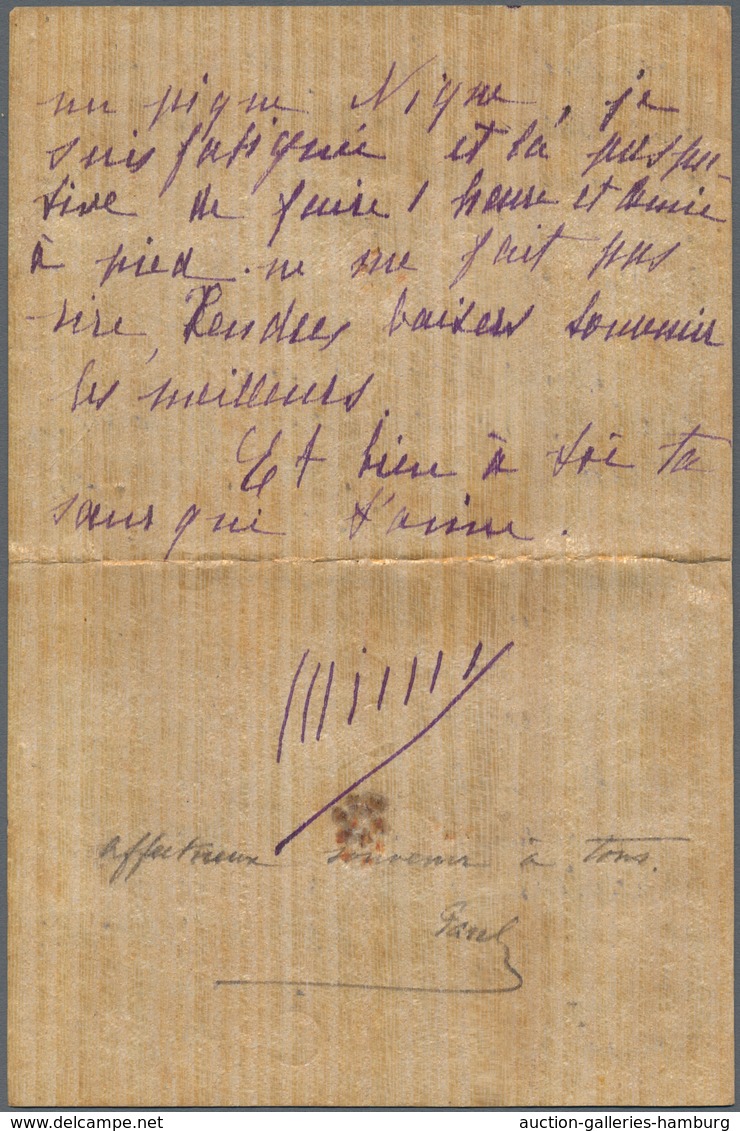 un pique Nique, je
suis fatiguée et la perspec-
tive de faire 1 heure et demie
à pied ne me fait pas
rire, Tendres baisers souvenir
les meilleurs
Et bien à toi ta
sœur qui t'aime.
affectueux souvenir à tous.
Paul
www.delcampe.net
auction-galleries-hamburg